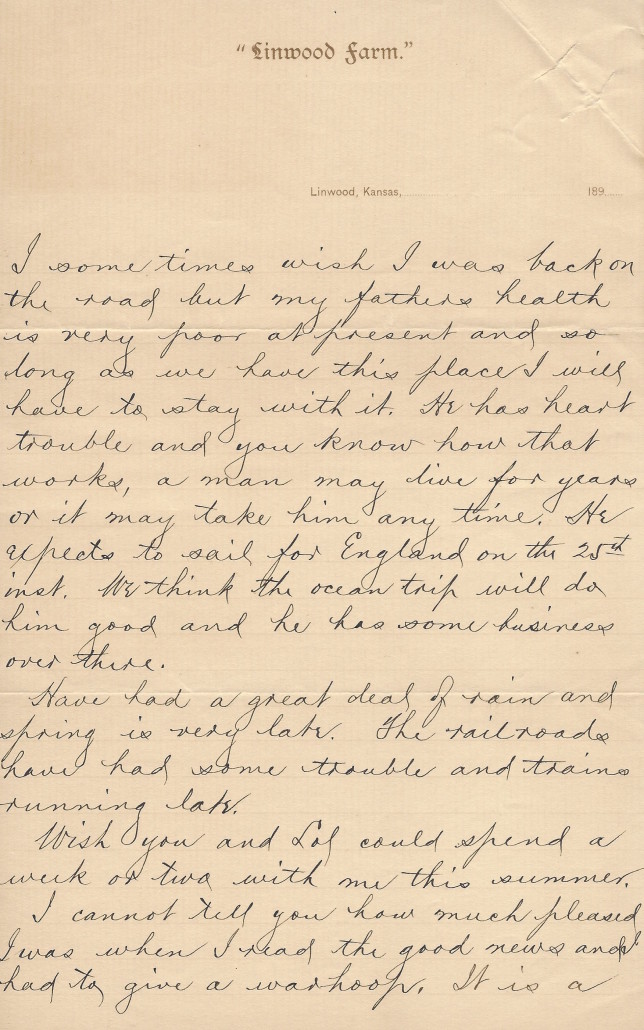 "Linwood Farm."
Linwood, Kansas, 189
I some times wish I was back on
the road but my fathers health
is very poor at present and so
long as we have this place I will
have to stay with it. He has heart
trouble and you know how that
works, a man may live for years
or it may take him any time. He
expects to sail for England on the 25th
inst. We think the ocean trip will do
him good and he has some business
over there.
Have had a great deal of rain and
spring is very late. The railroads
have had some trouble and trains
running late.
Wish you and Lol could spend a
week or two with me this summer.
I cannot tell you how much pleased
I was when I read the good news and I
had to give a warhoop. It is a